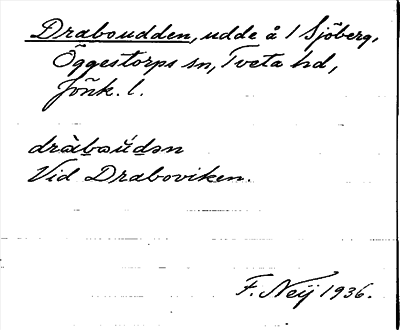 Draboudden, udde å 1 Sjöberg,
Öggestorps sn, Tveta hd,
Jönk. l.
dràbəúdən
Vid Draboviken.
F. Neij 1936.